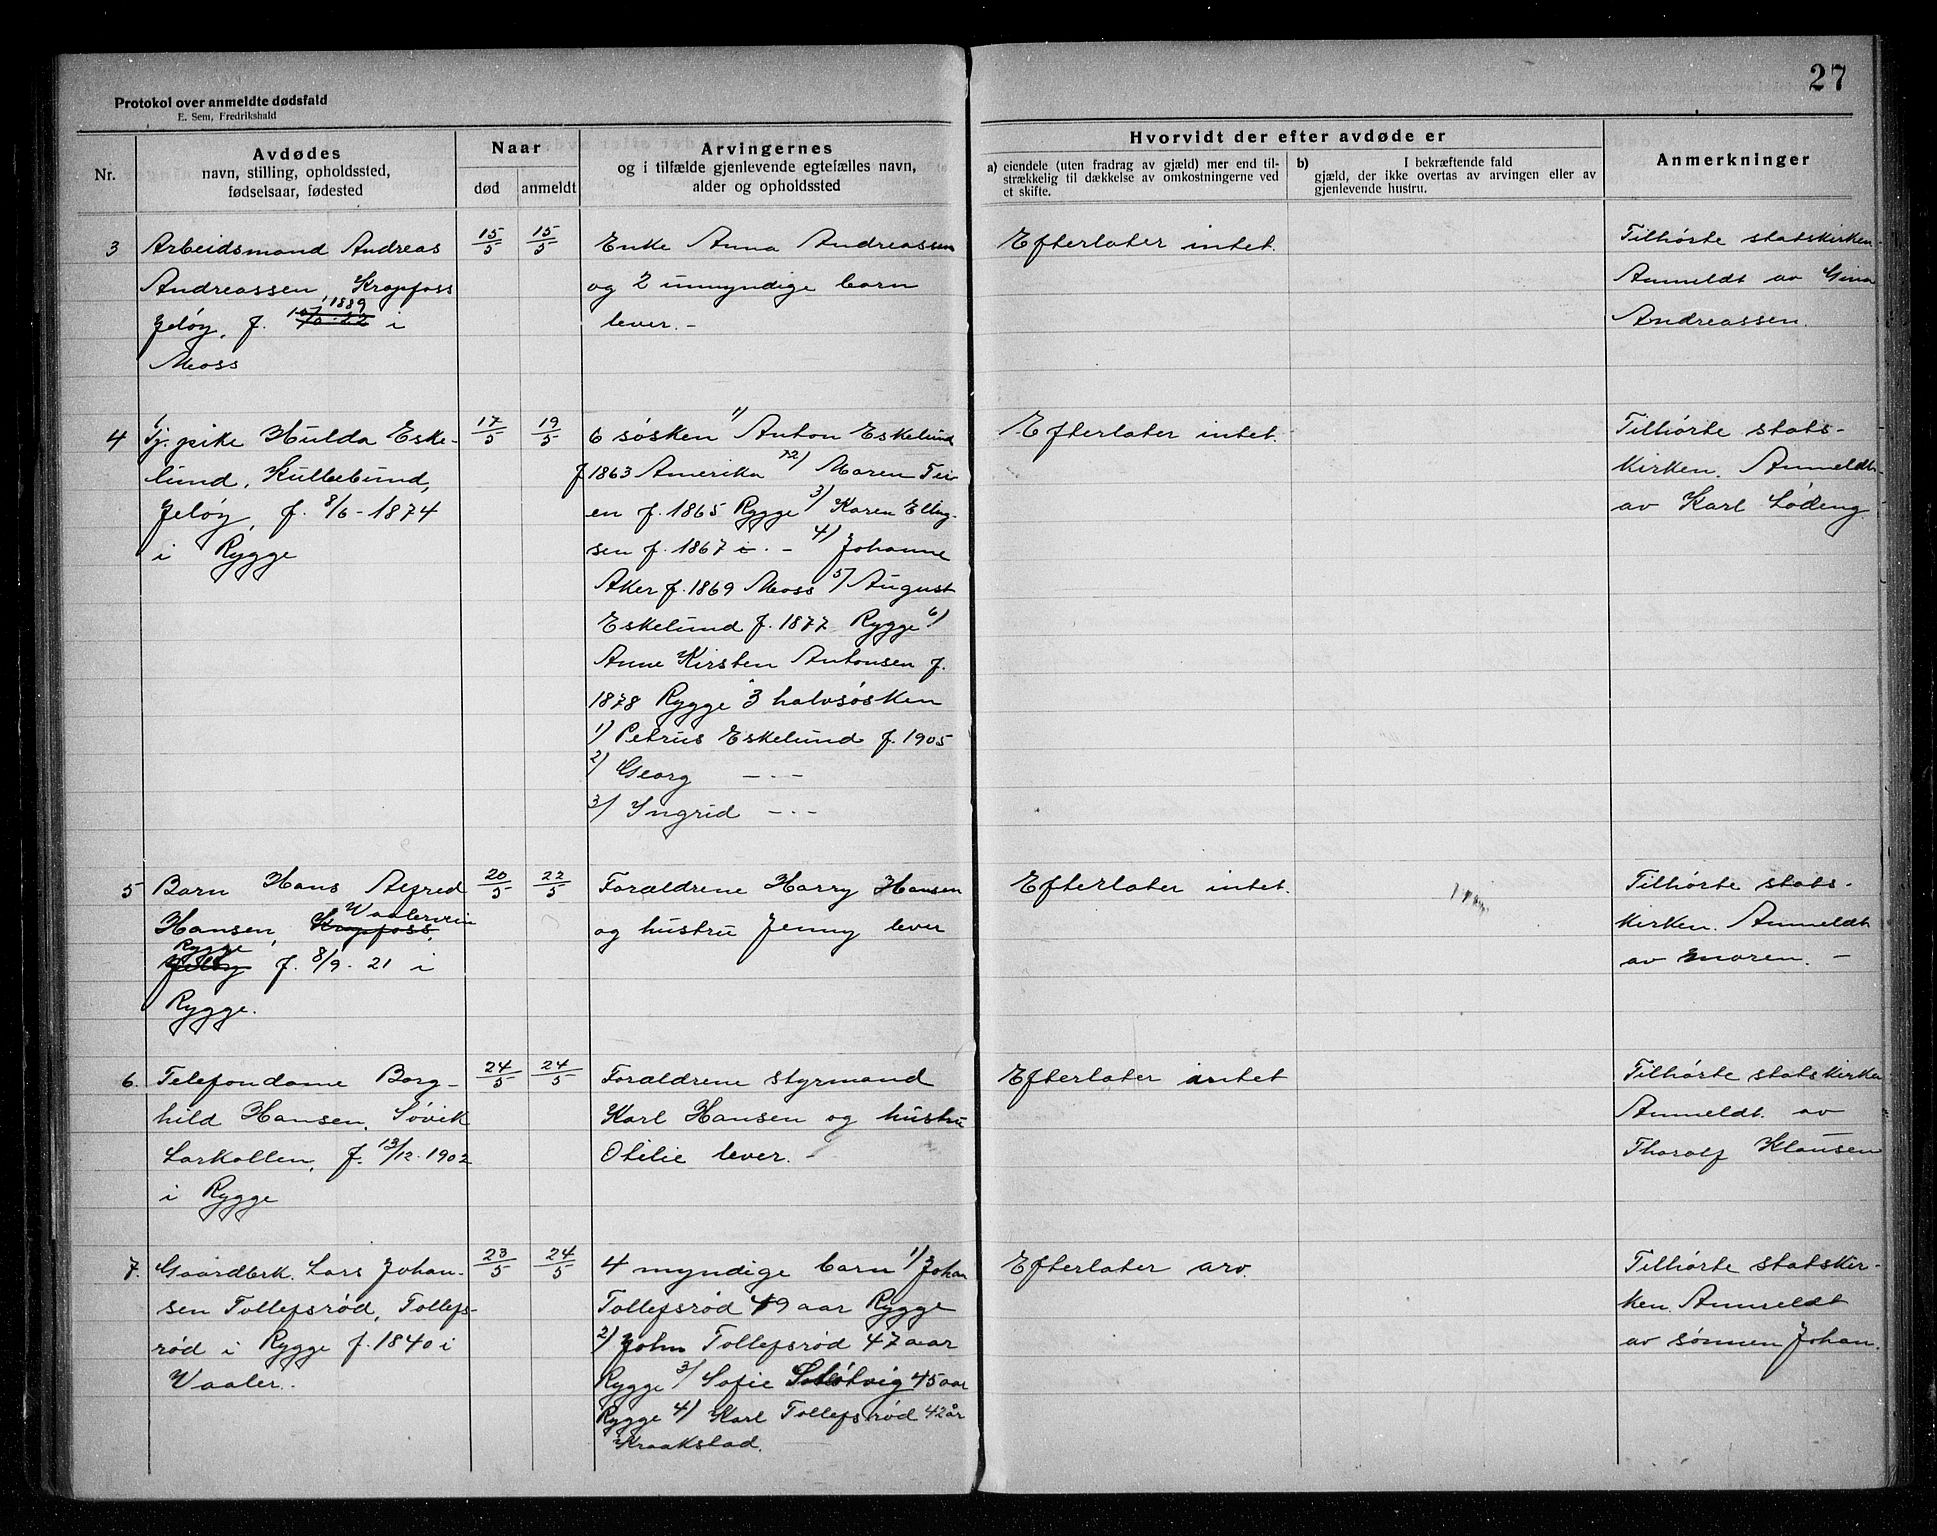 27
Protokol over anmeldte dødsfald
E. Sem, Fredrikshald
Nr.
Avdødes
navn, stilling, opholdssted,
fødselsaar, fødested
Naar
død
anmeldt
Arvingernes
og i tilfælde gjenlevende egtefælles navn,
alder og opholdssted
Hvorvidt der efter avdøde er
a) eiendele (uten fradrag av gjæld) mer end til-
strækkelig til dækkelse av omkostningerne ved
et skifte.
b) I bekræftende fald
gjæld, der ikke overtas av arvingen eller av
gjenlevende hustru.
Anmerkninger
3
Arbeidsmand Andreas
Andreassen, Krapfoss
1889
Jeløy, f. i
Moss
15/5
15/5
Enke Anna Andreassen
og 2 umyndige barn
lever. -
Efterlater intet.
Tilhørte statskirken.
Anmeldt av Gina
Andreassen.
4
Tj. pike Hulda Eske-
lund, Kullebund,
Jeløy, f. 8/6-1874
i Rygge
17/5
19/5
6 søsken 1) Anton Eskelund
f 1863 Amerika 2) Maren Tei-
en f. 1865 Rygge 3) Karen Elling-
sen f. 1867 i. - 4) Johanne
Aker f. 1869 Moss 5) August
Eskelund f. 1877 Rygge 6)
Anne Kirsten Antonsen f.
1878 Rygge 3 halvsøsken
1) Petrus Eskelund f. 1905
2) Georg - . -
3) Ingrid - . -
Efterlater intet.
Tilhørte stats-
kirken. Anmeldt
av Karl Lødeng.
5
Barn Hans Alfred
Waalerveien
Hansen, Krapfoss,
Rygge
Jeløy f. 8/9. 21 i
Rygge.
20/5
22/5
Forældrene Harry Hansen
og hustru Jenny lever
Efterlater intet.
Tilhørte stats-
kirken. Anmeldt
av moren. -
6.
Telefondame Borg-
hild Hansen, Søvik
Larkollen, f. 13/12. 1902
i Rygge
24/5
24/5
Forældrene styrmand
Karl Hansen og hustru
Otilie lever. -
Efterlater intet
Tilhørte statskirken
Anmeldt av
Thoralf Klausen
7.
Gaardbrk. Lars Johan-
sen Tollefsrød, Tollefs-
rød i Rygge f. 1840 i
Vaaler.
23/5
24/5
4 myndige barn 1) Johan
Tollefsrød 49 aar Rygge
2) John Tollefsrød 47 aar
Rygge 3) Sofie 45 aar
Rygge 4) Karl Tollefsrød 42 år
Kraakstad.
Efterlater arv.
Tilhørte statskir-
ken. Anmeldt
av sønnen Johan.